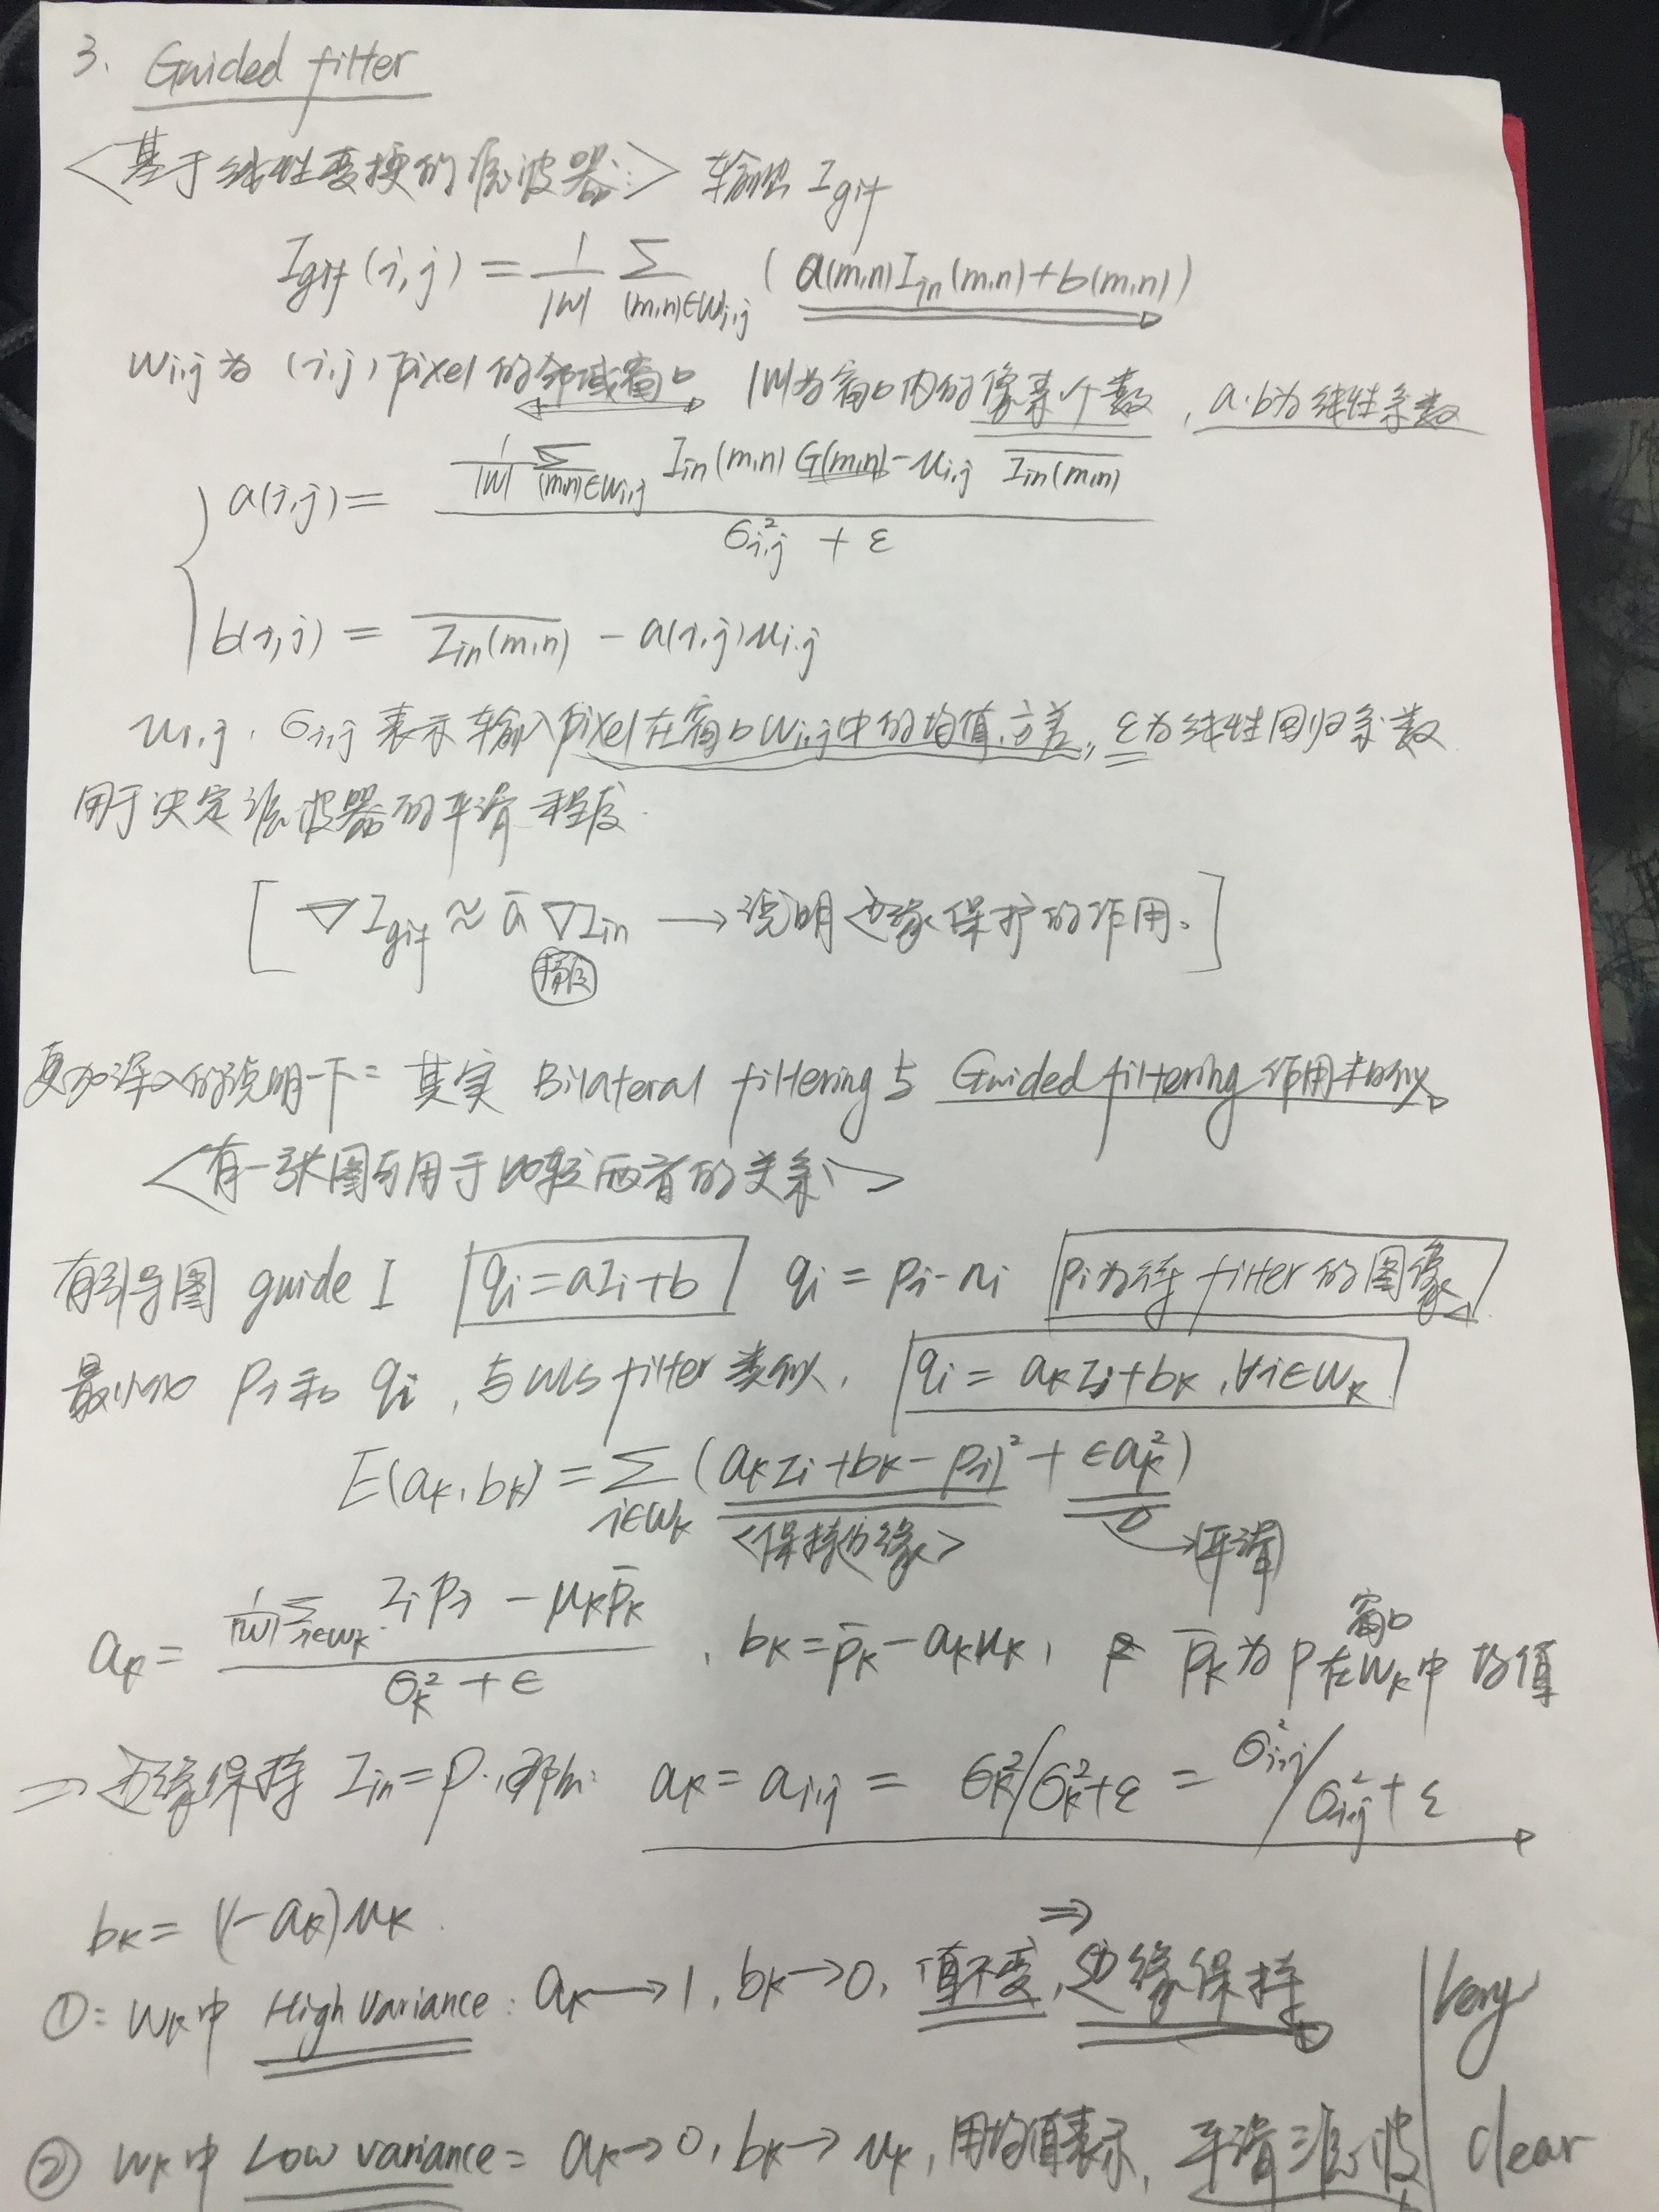 3. Guided filter
<基于线性变换的滤波器:> 输出 I_gif
I_gif(i,j) = 1/|w| Σ_(m,n)∈W_i,j (a(m,n)I_in(m,n)+b(m,n))
W_i,j为 (i,j) pixel 的邻域窗口 |W|为窗口内的像素个数, a.b为线性系数
a(i,j) = (1/|w| Σ_(m,n)∈W_i,j I_in(m,n) G(m,n) - u_i,j \overline{I_in(m,n)}) / (σ²_i,j + ε)
b(i,j) = \overline{I_in(m,n)} - a(i,j)u_i,j
u_i,j. σ_i,j 表示输入pixel在窗口W_i,j中的均值.方差, ε为线性回归系数
用于决定滤波器的平滑程度.
[ ∇I_gif ≈ ā ∇I_in → 说明边缘保护的作用。]
梯度
更加深入的说明一下: 其实 Bilateral filtering与 Guided filtering 作用类似
<有一张图可用于比较两者的关系>
有引导图 guide I q_i=aI_i+b q_i = p_i-n_i p_i为待filter的图像
最小化 p_i和 q_i , 与WLS filter 类似, q_i = a_k I_i+b_k , ∀i∈W_k
E(a_k, b_k) = Σ_i∈W_k (a_k I_i+b_k-p_i)² + εa_k²)
<保持边缘> 平滑
a_k = (1/|w| Σ_i∈W_k I_i p_i - μ_k p̄_k) / (σ_k² + ε) , b_k= p̄_k-a_k u_k, p̄_k 为 p 在窗口W_k中 均值
⇒ 边缘保持 I_in=p, 那么: a_k = a_i,j = σ_k²/σ_k²+ε = σ²_i,j/σ²_i,j+ε
b_k= (1-a_k)u_k.
①: W_k中 High variance: a_k→1, b_k→0, 值不变, ⇒ 边缘保持
② W_k中 Low variance: a_k→0, b_k→u_k, 用均值表示, 平滑滤波
Very
clear